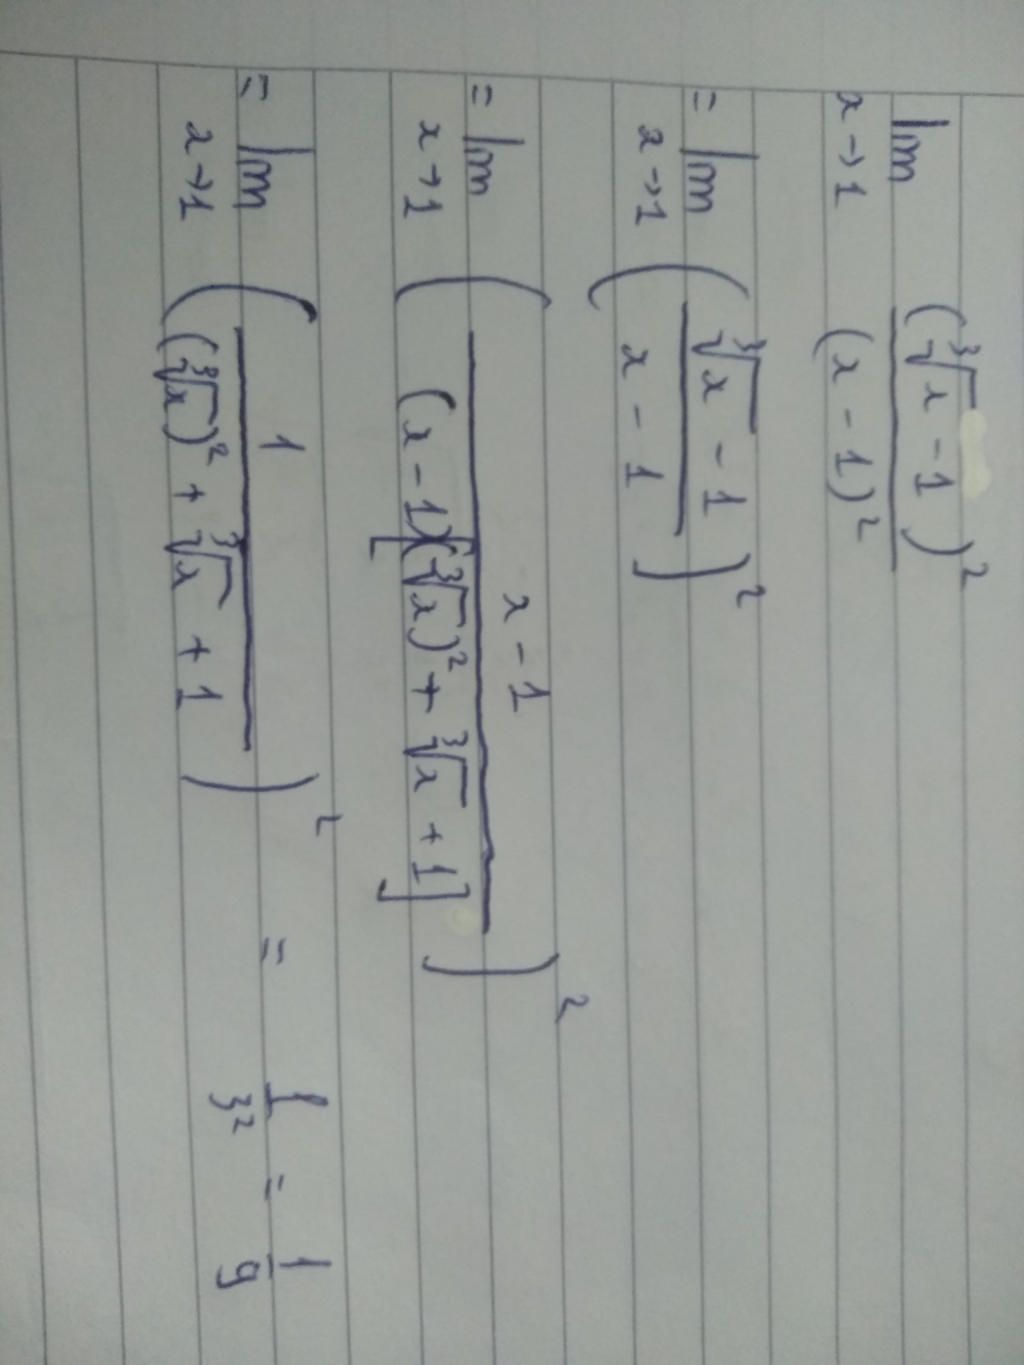 lim x→1 (∛x - 1)² / (x - 1)²
= lim x→1 ( (∛x - 1) / (x - 1) )²
= lim x→1 ( (x - 1) / ((x - 1)[(∛x)² + ∛x + 1]) )²
= lim x→1 ( 1 / ((∛x)² + ∛x + 1) )² = 1/3² = 1/9